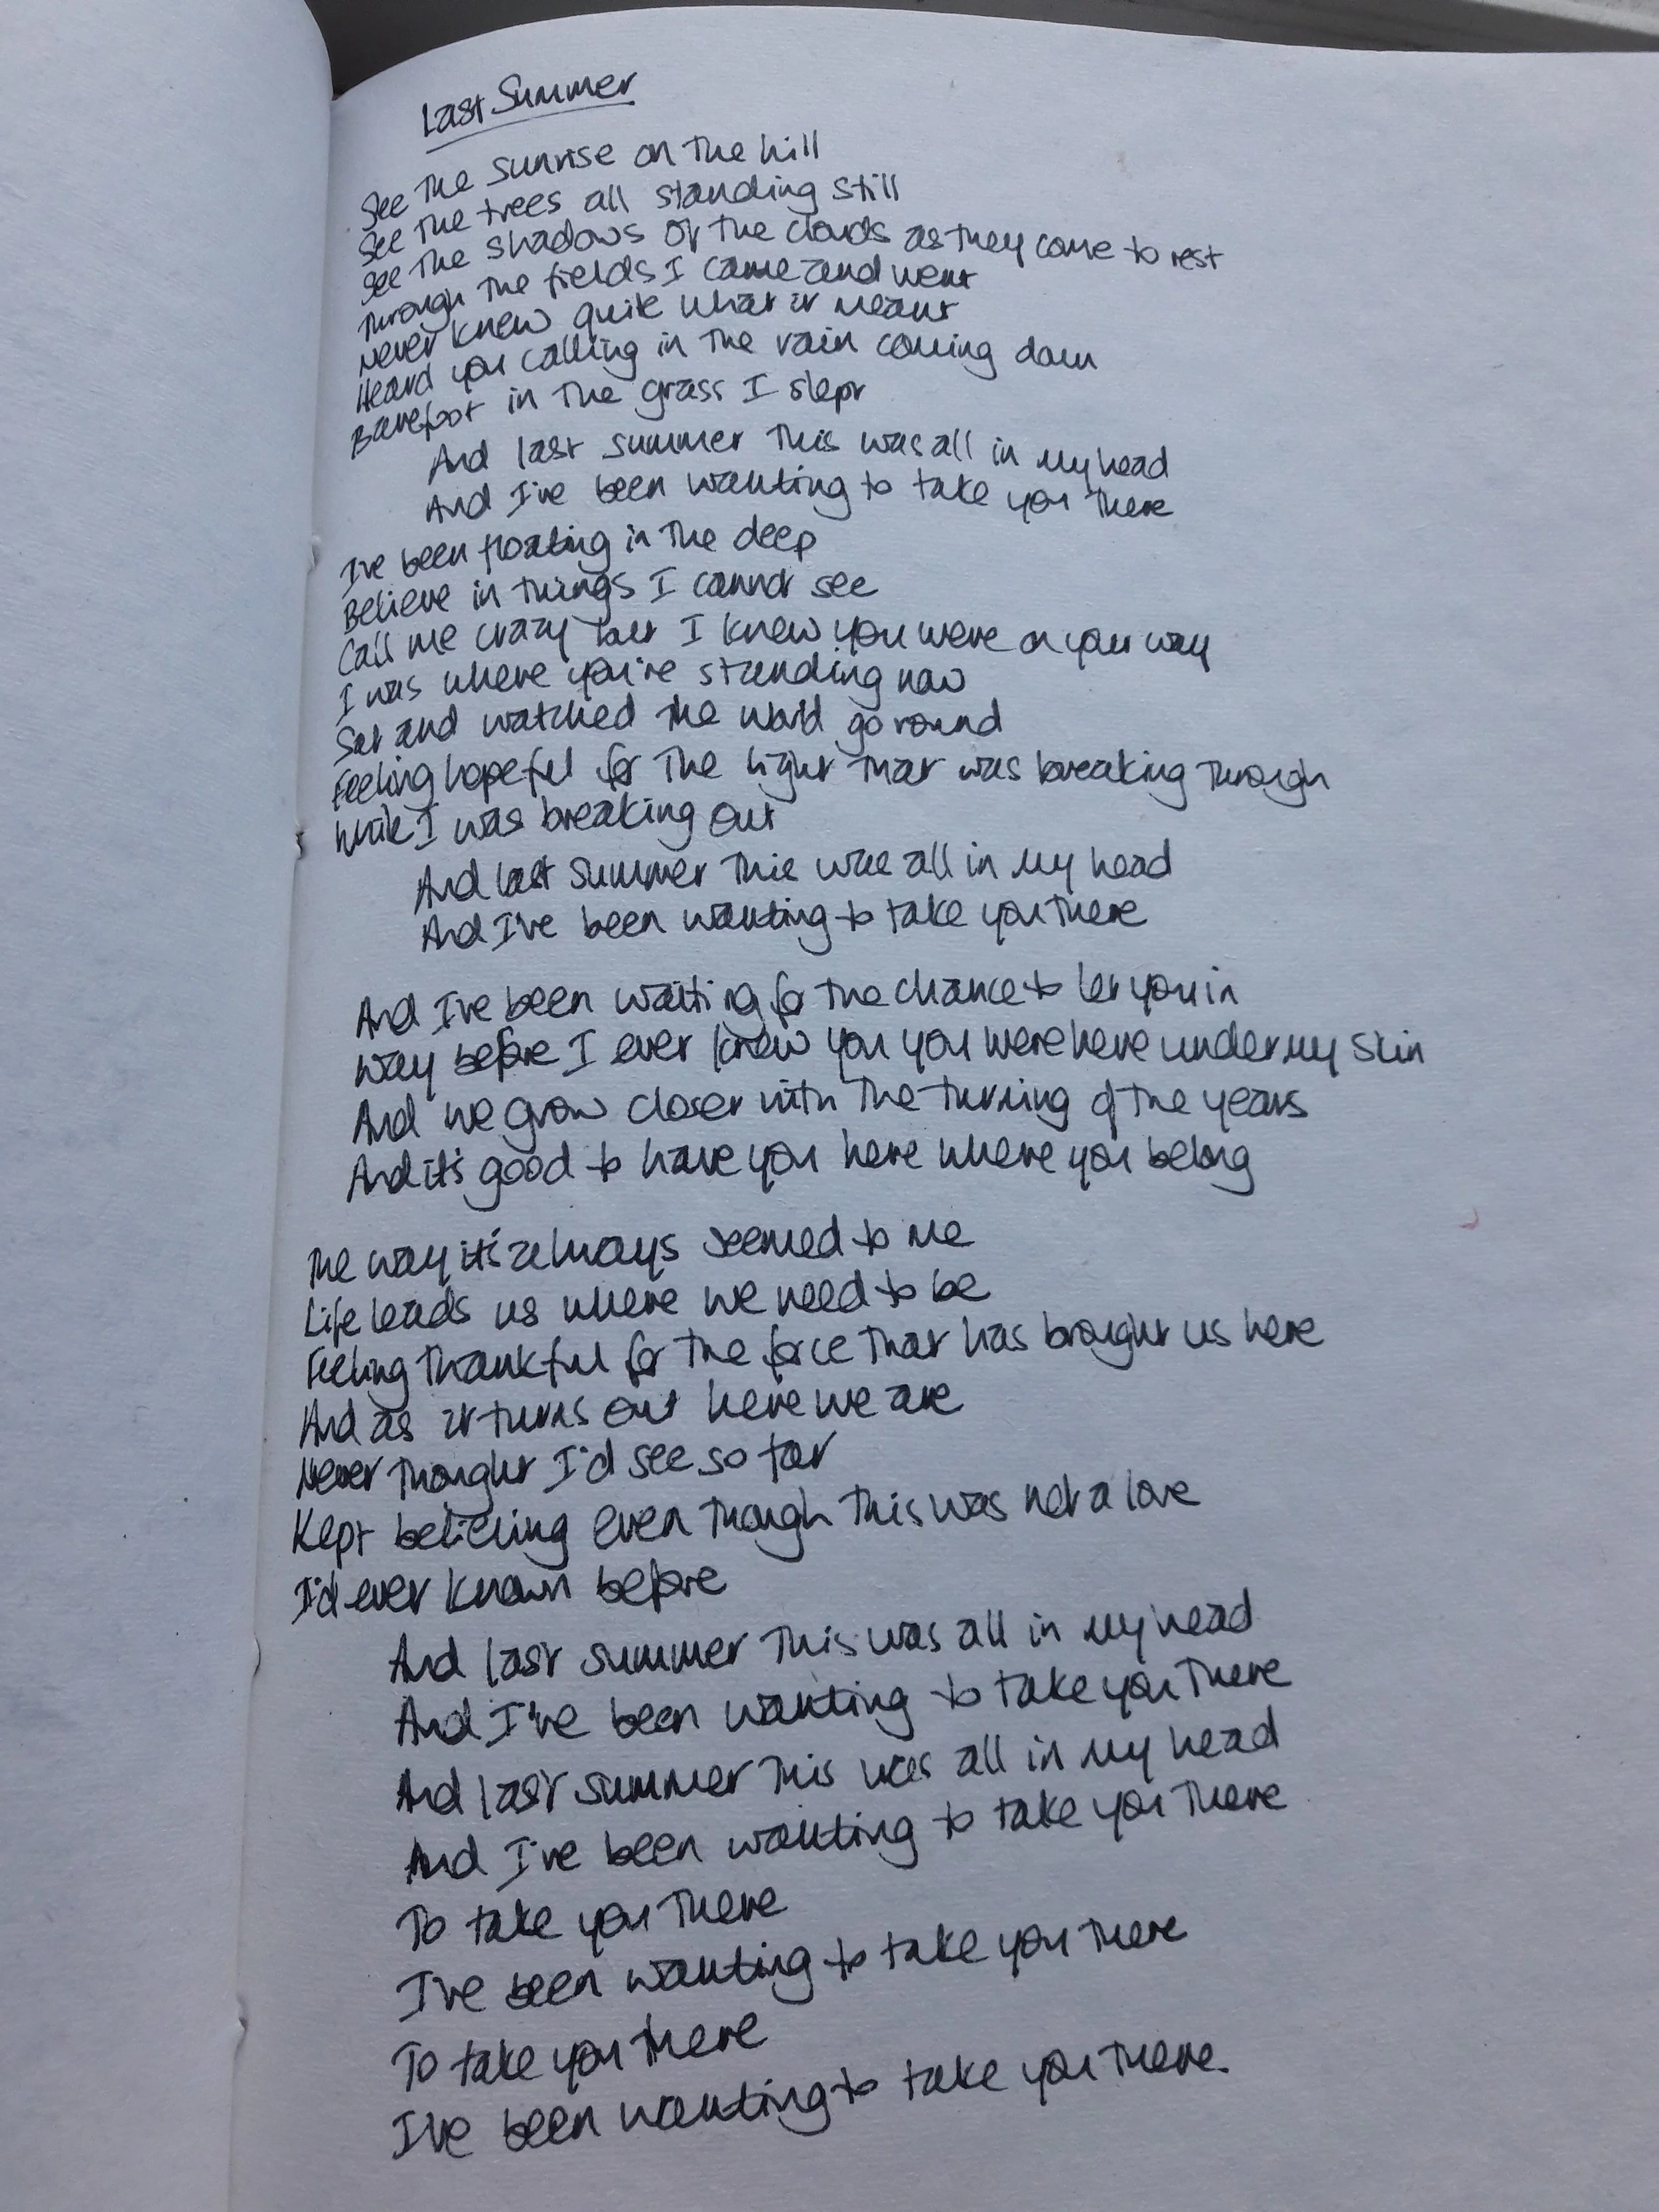 Last Summer
See the sunrise on the hill
See the trees all standing still
See the shadows of the clouds as they come to rest
Through the fields I came and went
Never knew quite what it meant
Heard you calling in the rain coming down
Barefoot in the grass I slept
And last summer this was all in my head
And I've been wanting to take you there
I've been floating in the deep
Believe in things I cannot see
Call me crazy but I knew you were on your way
I was where you're standing now
Sat and watched the world go round
Feeling hopeful for the light that was breaking through
While I was breaking out
And last summer this was all in my head
And I've been wanting to take you there
And I've been waiting for the chance to let you in
Way before I ever knew you you were here under my skin
And we grow closer with the turning of the years
And it's good to have you here where you belong
The way it's always seemed to me
Life leads us where we need to be
Feeling thankful for the force that has brought us here
And as it turns out here we are
Never thought I'd see so far
Kept believing even though this was not a love
I'd ever known before
And last summer this was all in my head
And I've been wanting to take you there
And last summer this was all in my head
And I've been wanting to take you there
To take you there
I've been wanting to take you there
To take you there
I've been wanting to take you there.